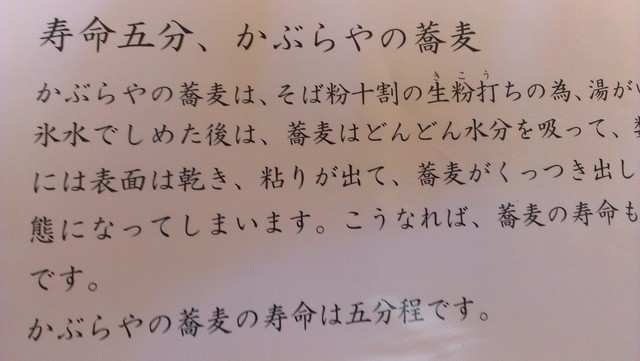 寿命五分、かぶらやの蕎麦
かぶらやの蕎麦は、そば粉十割の生粉打ちの為、湯が
きこう
氷水でしめた後は、蕎麦はどんどん水分を吸って、
には表面は乾き、粘りが出て、蕎麦がくっつき出し
態になってしまいます。こうなれば、蕎麦の寿命も
です。
かぶらやの蕎麦の寿命は五分程です。